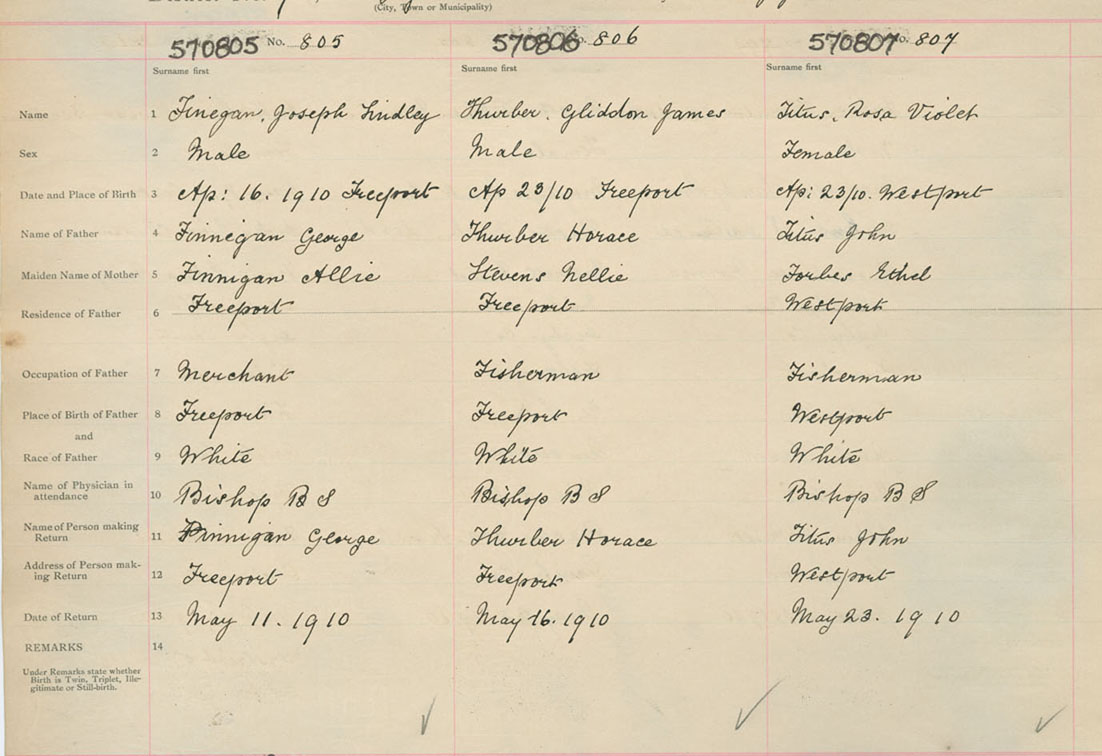 (City, Town or Municipality)
570805 No. 805 570806 No. 806 570807 No. 807
Surname first Surname first Surname first
Name 1 Finegan, Joseph Lindley Thurber, Gliddon James Titus, Rosa Violet
Sex 2 Male Male Female
Date and Place of Birth 3 Ap: 16. 1910 Freeport Ap 23/10 Freeport Ap: 23/10. Westport
Name of Father 4 Finnegan George Thurber Horace Titus John
Maiden Name of Mother 5 Finnigan Allie Stevens Nellie Forbes Ethel
Residence of Father 6 Freeport Freeport Westport
Occupation of Father 7 Merchant Fisherman Fisherman
Place of Birth of Father 8 Freeport Freeport Westport
and
Race of Father 9 White White White
Name of Physician in
attendance 10 Bishop B S Bishop B S Bishop B S
Name of Person making
Return 11 Finnigan George Thurber Horace Titus John
Address of Person mak-
ing Return 12 Freeport Freeport Westport
Date of Return 13 May 11. 1910 May 16. 1910 May 23. 1910
REMARKS 14
Under Remarks state whether
Birth is Twin, Triplet, Ille-
gitimate or Still-birth.